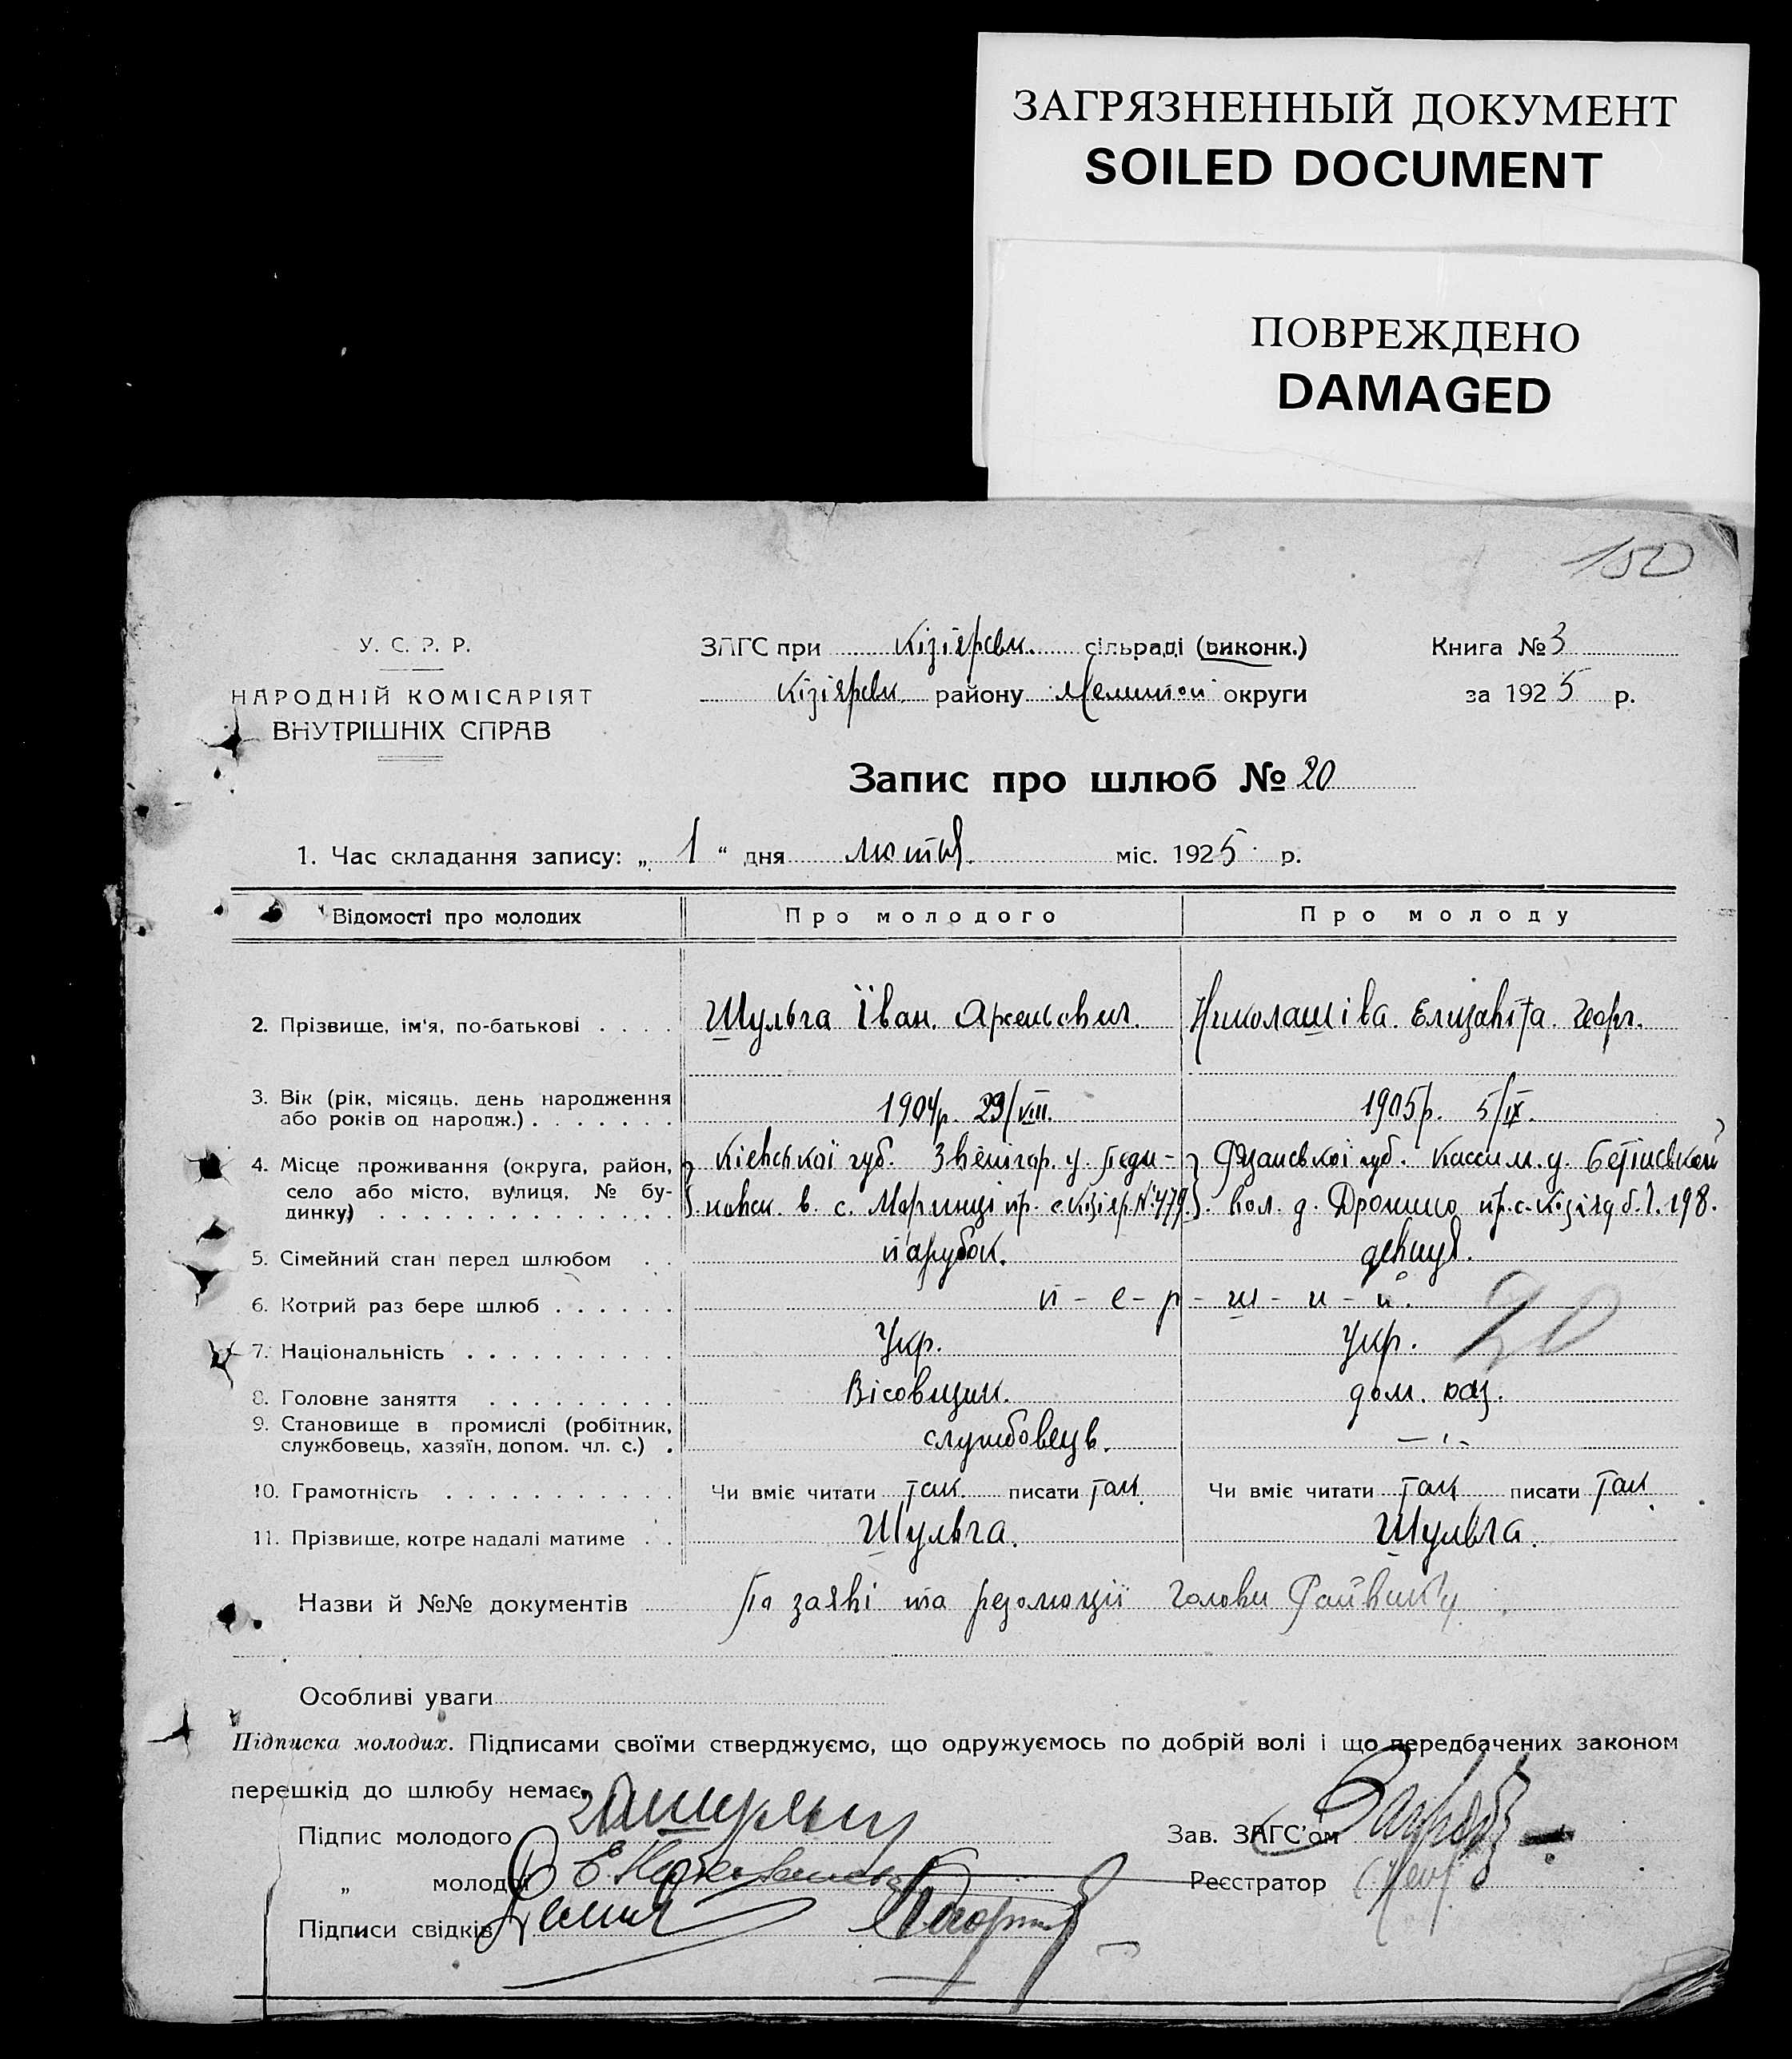 ЗАГРЯЗНЕННЫЙ ДОКУМЕНТ
SOILED DOCUMENT
ПОВРЕЖДЕНО
DAMAGED
150
У. С. Р. Р.
НАРОДНІЙ КОМІСАРІЯТ
ВНУТРІШНІХ СПРАВ
ЗАГС при Кізіярськ. сільраді (виконк.)
Кізіярськ. району Мелитоп округи
Книга № 3
за 1925 р.
Запис про шлюб № 20
1. Час складання запису: „ 1 “ дня лютня. міс. 1925 р.
Відомості про молодих Про молодого Про молоду
2. Прізвище, ім'я, по-батькові . . . . Шульга Їван. Арсеньович. Николашіва. Елизавіта. Георг.
3. Вік (рік, місяць, день народження
або років од народж.) . . . . . . . 1904р. 29/VIII. 1905р. 5/IX.
4. Місце проживання (округа, район, Кіевської губ. Звенігор. у.
село або місто, вулиця, № бу-
динку) . . . . . . . . . . . . . в. с. Маринці пр. с. Кізіяр. № 479. вол. д. Дронино пр. с. Кізіяр б. 198.
5. Сімейний стан перед шлюбом . . парубок. девиця.
6. Котрий раз бере шлюб . . . . . . п - е - р - ш - и - й.
20
7. Національність . . . . . . . . . . Укр. Укр.
8. Головне заняття . . . . . . . . . Вісовщик. дом. хаз.
9. Становище в промислі (робітник,
службовець, хазяїн, допом. чл. с.) . службовець. — „ —
10. Грамотність . . . . . . . . . . . Чи вміє читати так. писати так. Чи вміє читати так писати так.
11. Прізвище, котре надалі матиме . . Шульга. Шульга.
Назви й №№ документів По заяві та резолюції голови Райвик'у.
Особливі уваги
Підписка молодих. Підписами своїми стверджуємо, що одружуємось по добрій волі і що передбачених законом
перешкід до шлюбу немає.
Підпис молодого Зав. ЗАГС'ом
„ молодої Реєстратор
Підписи свідків